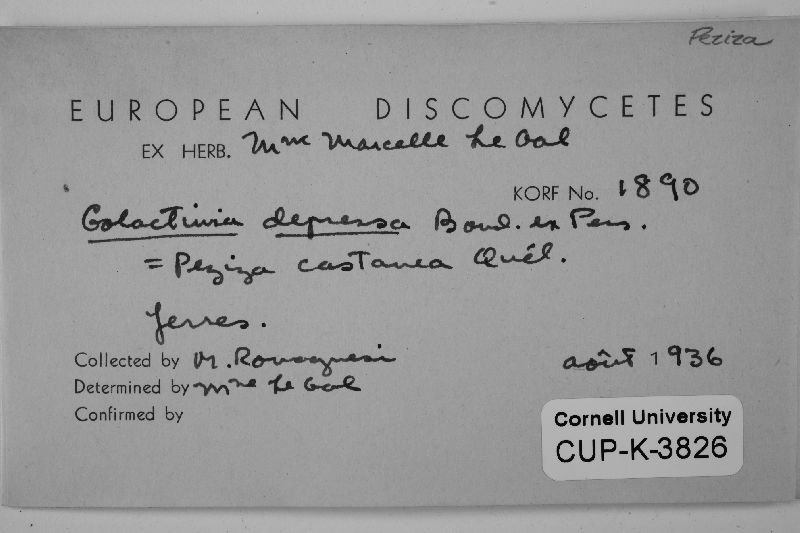 Peziza
EUROPEAN DISCOMYCETES
EX HERB. Mme Marcelle Le Gal
KORF No. 1890
Galactinia depressa Boud. ex Pers.
= Peziza castanea Quél.
Collected by M. août 1936
Determined by Mme Le Gal
Confirmed by
Cornell University
CUP-K-3826